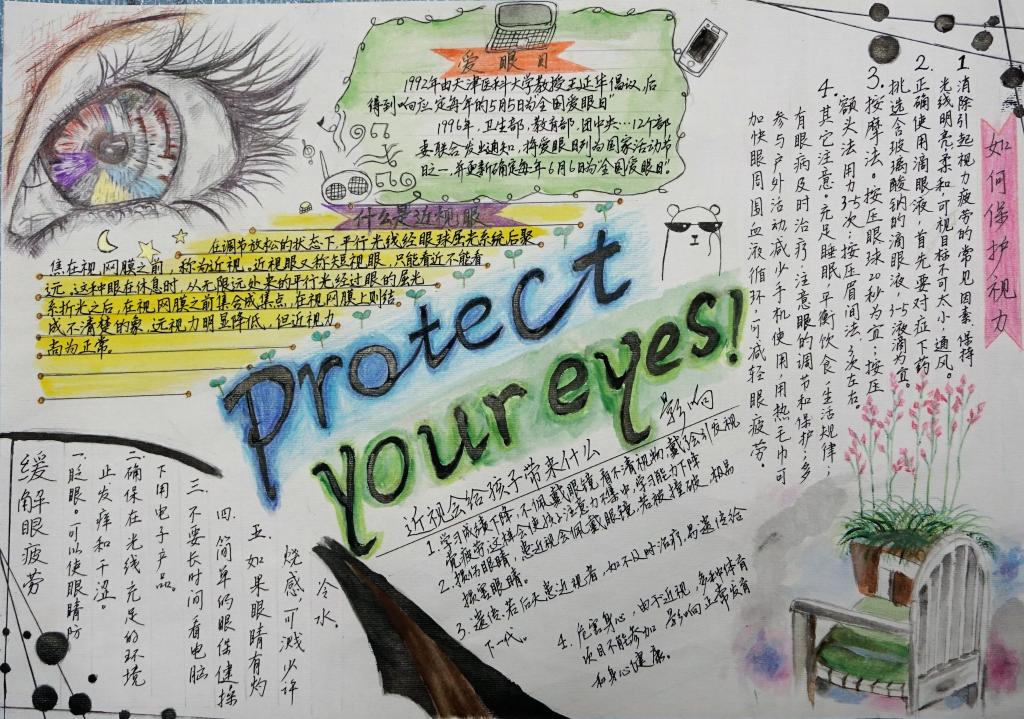 爱眼日
1992年由天津医科大学教授王延华倡议,后
得到响应,定每年的5月5为全国爱眼日"
1996年,卫生部,教育部,团中央…12个部
委联合发出通知,将爱眼日列为国家活动节
日之一,并重新确定每年6月6日为全国爱眼日!"
什么是近视眼
在调节放松的状态下,平行光线经眼球屈光系统后聚
焦在视网膜之前,称为近视。近视眼又称短视眼,只能看近不能看
远,这种眼在休息时,从无限远处来的平行光经过眼的屈光
系折光之后,在视网膜之前集合成焦点,在视网膜上则结
成不清楚的象,远视力明显降低,但近视力
尚为正常。
Protect
your eyes!
如何保护视力
1消除引起视力疲劳的常见因素,保持
光线明亮柔和可视目标不可太小,通风。
2.正确使用滴眼液,首先要对症下药
挑选含玻璃酸钠的滴眼液,3-5液滴为宜。
3.按摩法。按压眼球20秒为宜;按压
额头法用力3次;按压眉间法,3次左右
4.其它注意。充足睡眠,平衡饮食,生活规律;
有眼病及时治疗;注意眼的调节和保护,多
参与户外活动减少手机使用,用热毛巾可
加快眼周围血液循环,可减轻眼疲劳。
近视会给孩子带来什么影响
1.学习成绩下降,不佩戴眼镜,看不清视物,戴镜会引发视
觉疲劳这样会使得上注意力不集中,学习能力下降
2.损伤眼睛,患近视会佩戴眼镜,若被撞破,极易
损害眼睛。
3.遗传,若后天患近视者,如不及时治疗,易遗传给
下一代。
4.危害身心,由于近视,多种体育
项目不能参加 影响正常发育
和身心健康。
缓解眼疲劳
一眨眼。可以使眼睛防
止发痒和干涩。
二确保在光线充足的环境
下用电子产品。
三.不要长时间看电脑
四.简单的眼保健操
五.如果眼睛有灼
烧感,可溅少许
冷水。